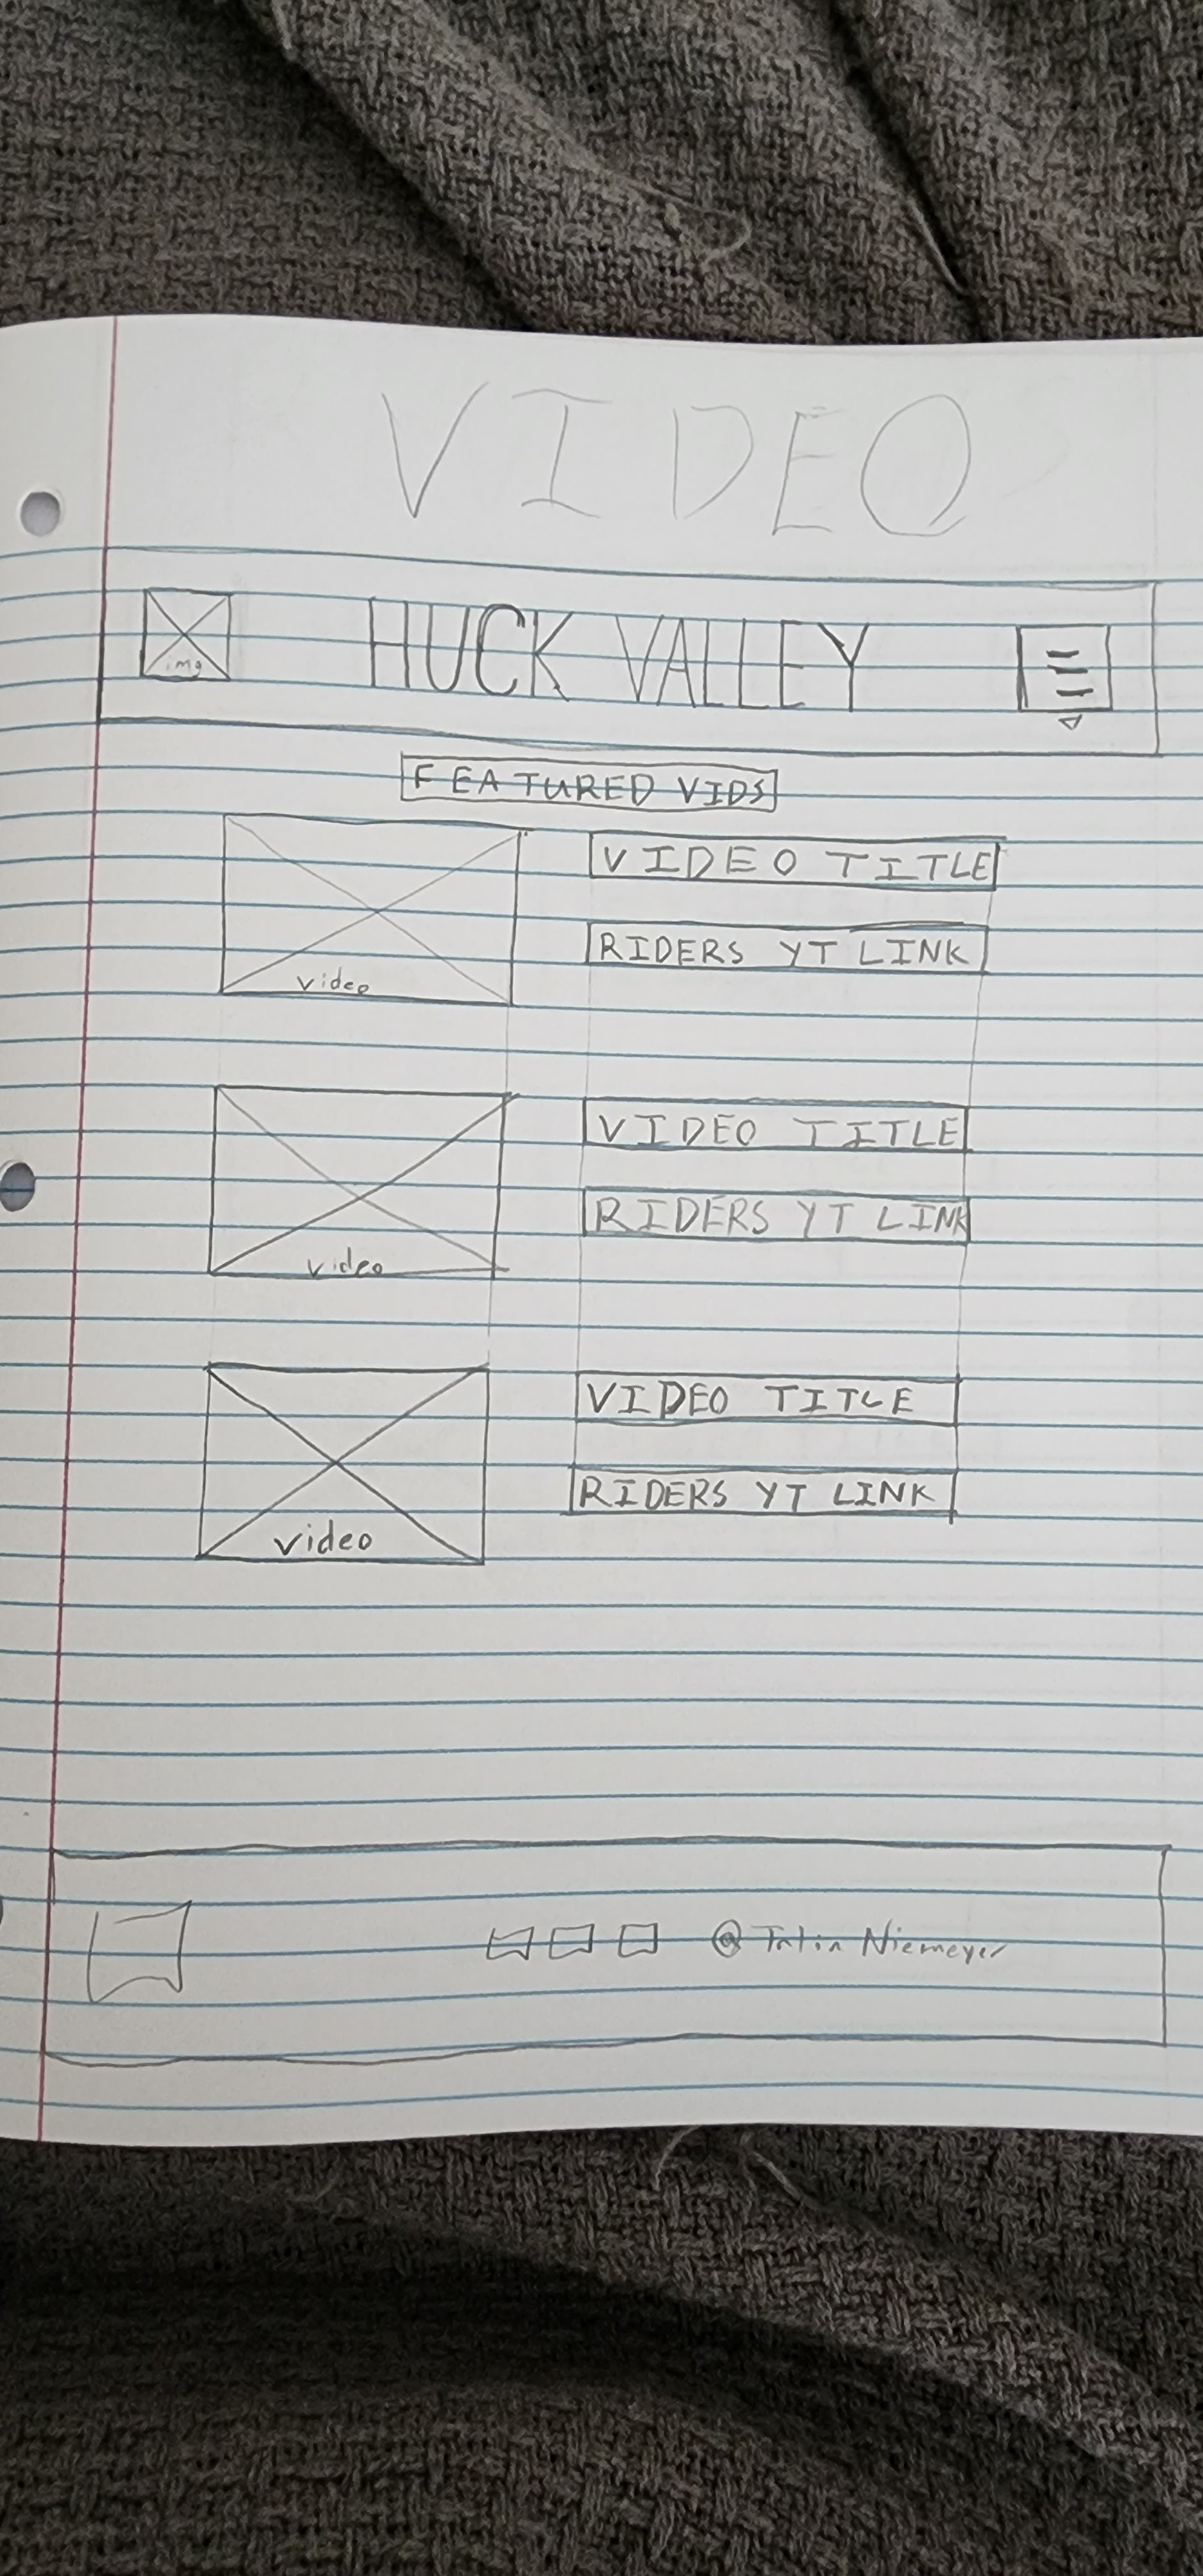 VIDEO
img HUCK VALLEY
FEATURED VIDS
VIDEO TITLE
RIDERS YT LINK
video
VIDEO TITLE
RIDERS YT LINK
video
VIDEO TITLE
RIDERS YT LINK
video
@ Niemeyer